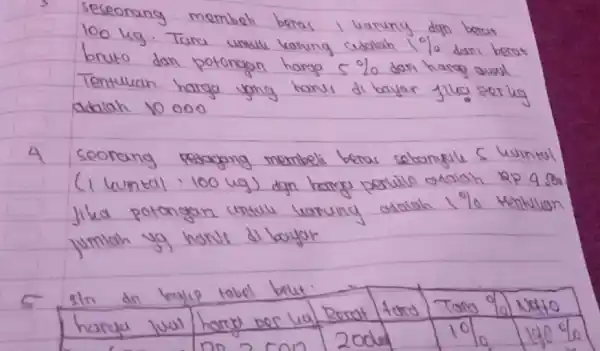 3 seseorang membeli beras 1 karung dgn berat
100 kg. Tara untuk karung adalah 1% dari berat
bruto dan potongan harga 5% dari harga awal
Tentukan harga yang harus di bayar jika per kg
adalah 10 000
4 seorang pedagang membeli beras sebanyak 5 kuintal
(1 kuintal : 100 kg) dgn harga perkilo adalah Rp
Jika potongan untuk karung adalah 1% tentukan
jumlah yg harus di bayar
5 tabel
harga jual harga per kg Berat tara Tara % Netto
1%